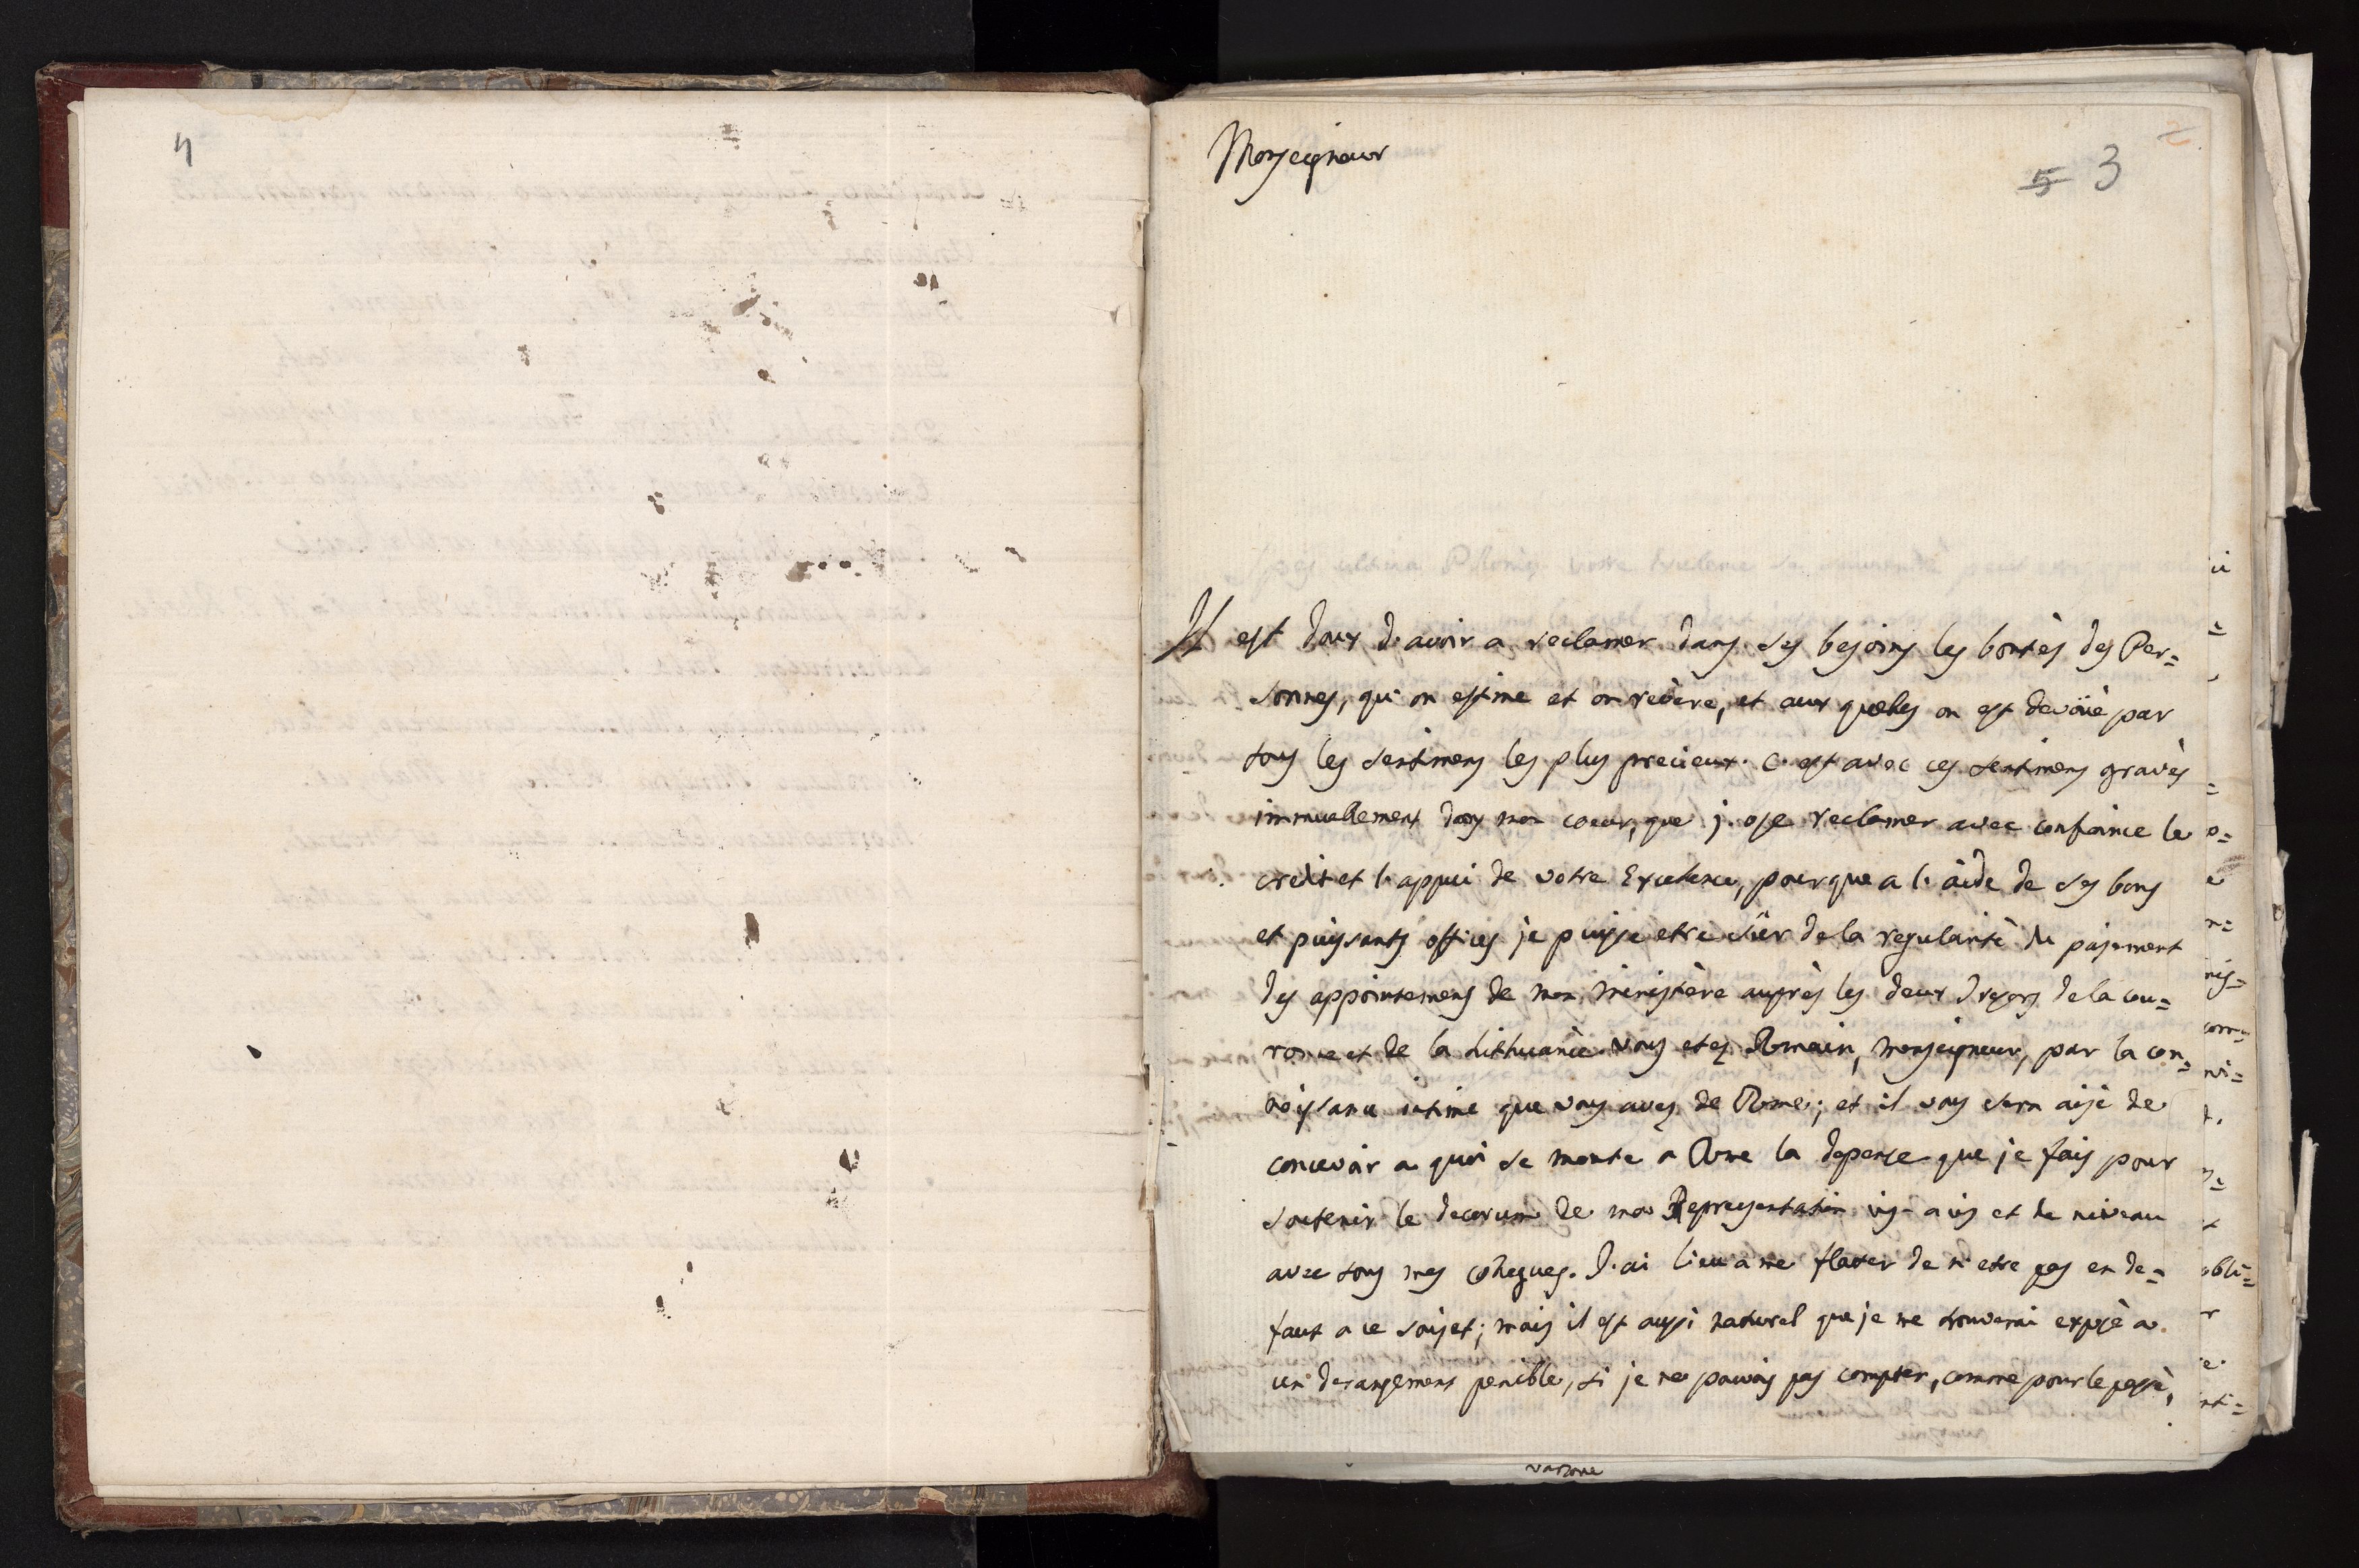 4
Monseigneur
5 3
2
Il est doux d'avoir a reclamer dans ses besoins les bontès des Per=
sonnes, qu'on estime et on revère, et aux queles on est devoüè par
tous les sentimens les plus precieux. C'est avec ces sentimens gravès
immuablement dans mon coeur, que j'ose reclamer avec confiance le
credit et l'appui de votre Excelence, pour que a l'àide de ses bons
et puissants offices je puisse etre sûr de la regularitè du pajement
des appointemens de mon ministère auprès les deux Tresors de la cou=
ronne et de la Lithuanie. Vous etes Romain, Monseigneur, par la con=
noissance intime que vous avez de Rome; et il vous sera aisè de
concevoir a quoi se monte a Rome la depense que je fais pour
soutenir le decorum de ma Representation vis-a vis et de niveau
avec tous mes colegues. J'ai lieu a me flater de n'etre pas en de=
faut a ce sujet; mais il est aussi naturel que je me trouverai exposè a
un derangement penible, si je ne pouvois pas compter, comme pour le passè,